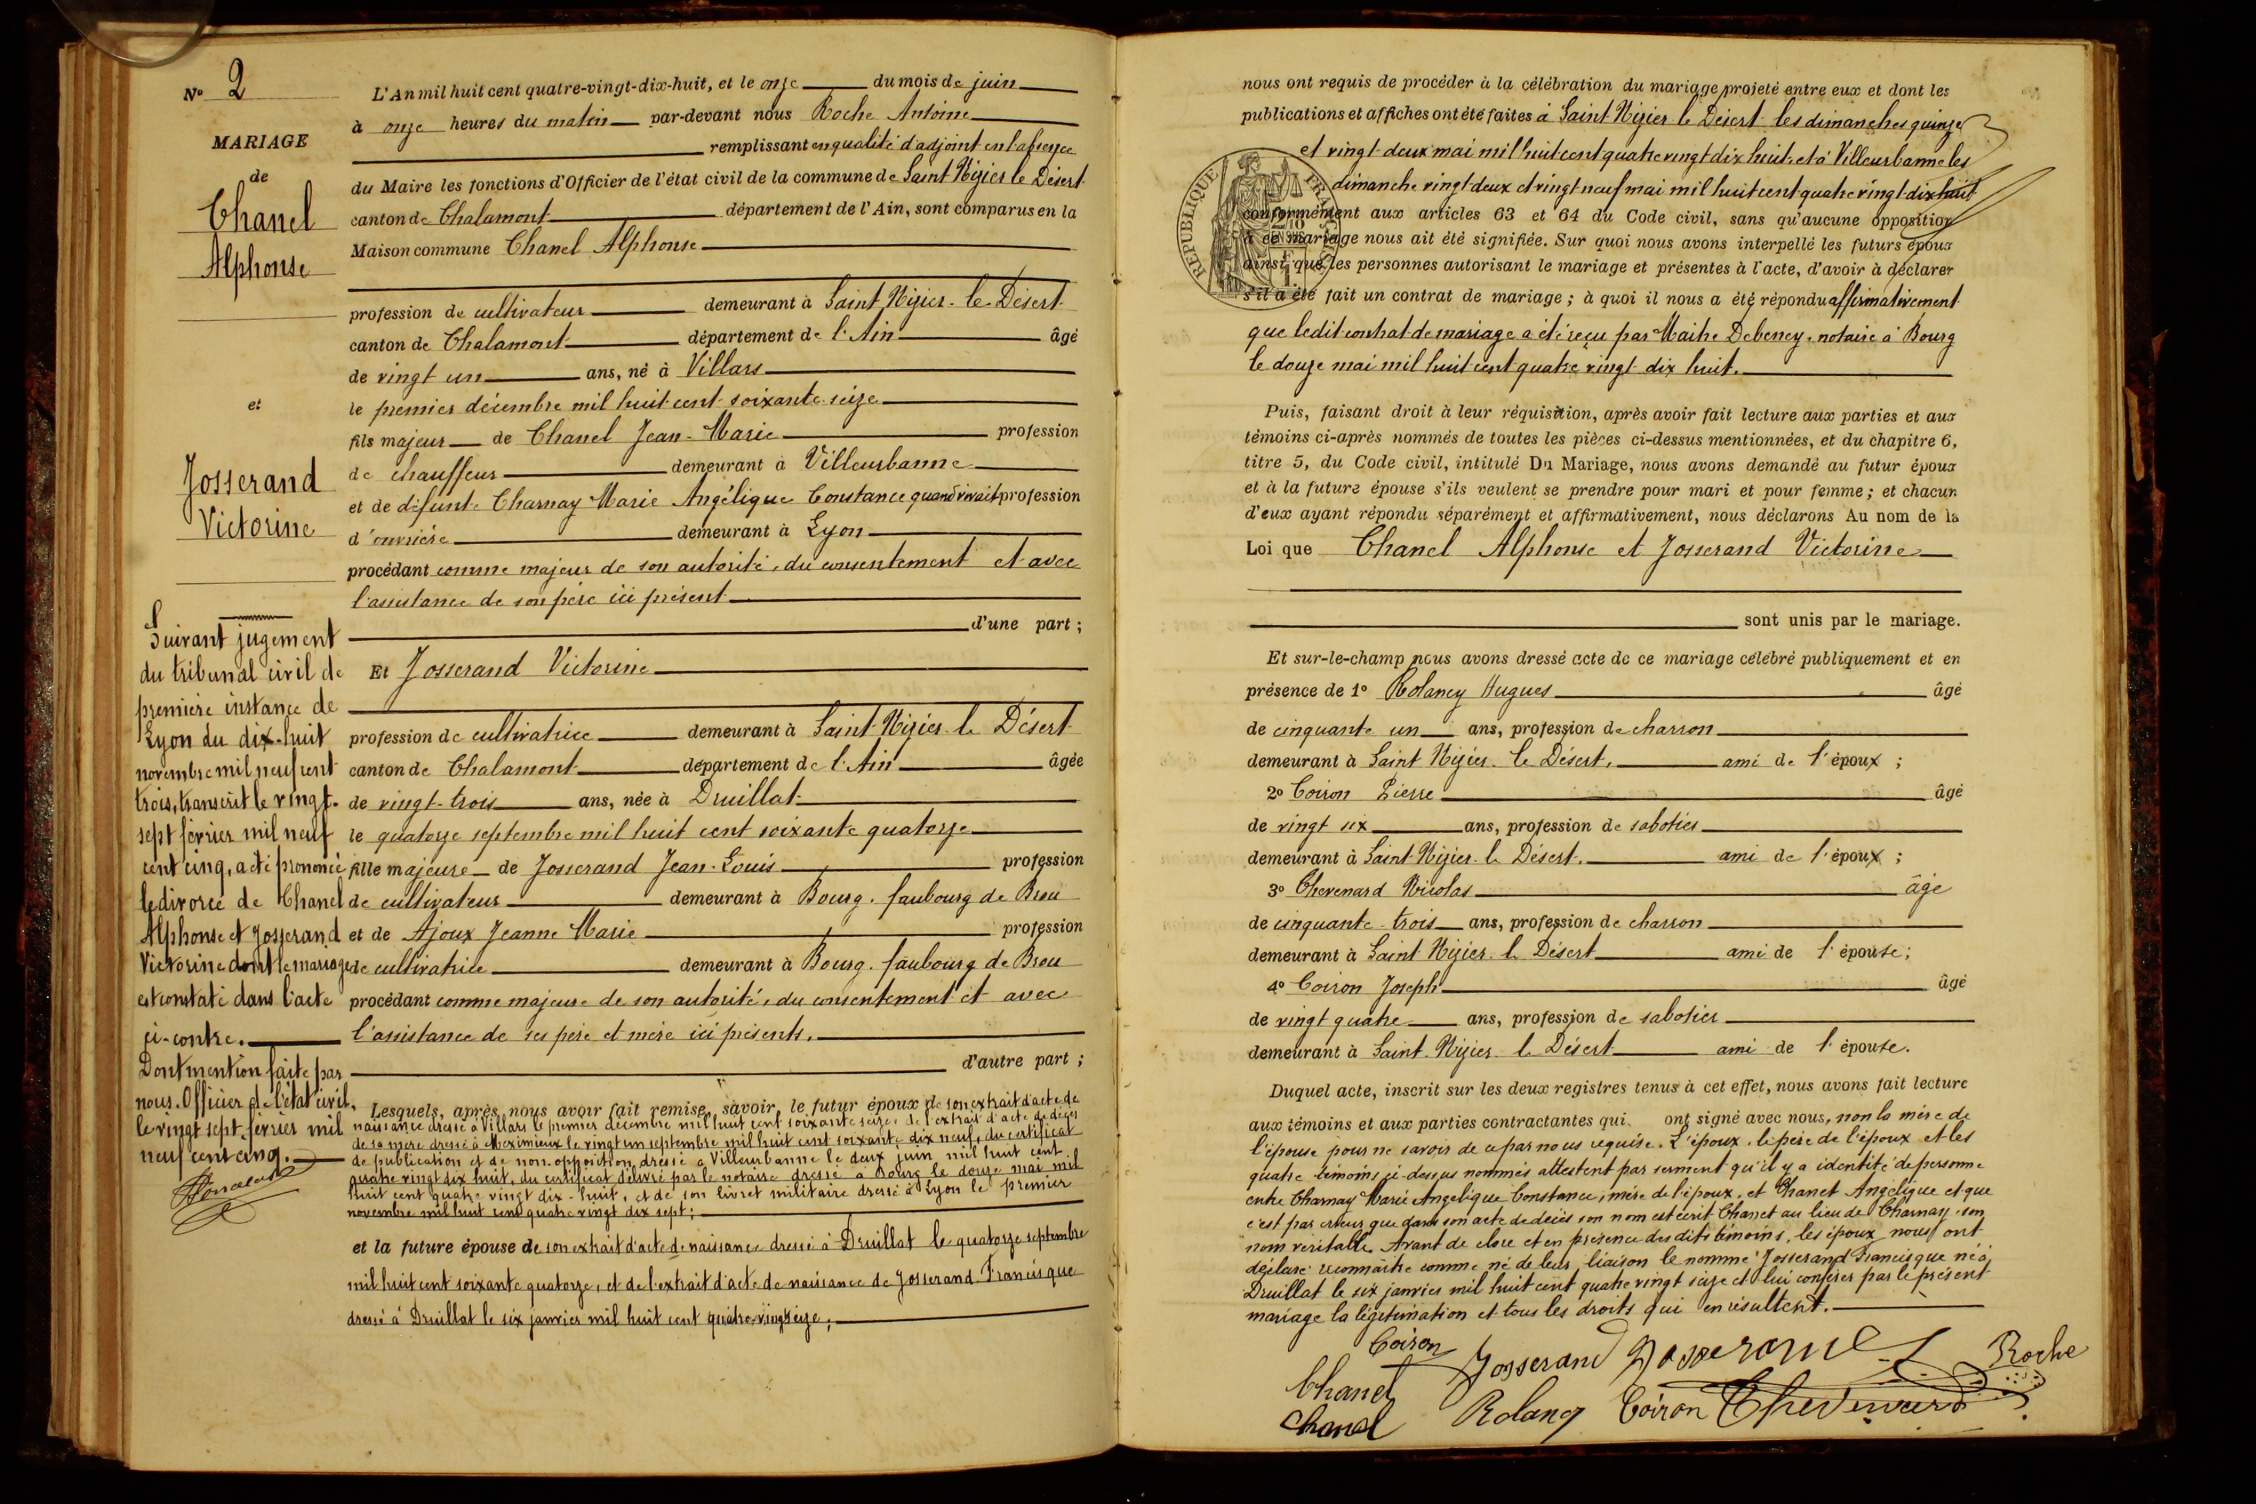 N° 2
MARIAGE
de
Chanel
Alphonse
et
Josserand
Victorine
Suivant jugement
du tribunal civil de
première instance de
Lyon du dix-huit
novembre mil neuf cent
trois, transcrit le vingt-
sept février mil neuf
cent cinq, a été prononcé
le divorce de Chanel
Alphonse et Josserand
Victorine dont le mariage
est constaté dans l'acte
ci-contre.
Dont mention faite par
nous. Officier de l'état civil,
le vingt sept février mil
neuf cent cinq.
L'An mil huit cent quatre-vingt-dix-huit, et le onze du mois de juin
à onze heures du matin par-devant nous Roche Antoine
remplissant en qualité d'adjoint en l'absence
du Maire les fonctions d'Officier de l'état civil de la commune de Saint Nizier le Désert
canton de Chalamont département de l'Ain, sont comparus en la
Maison commune Chanel Alphonse
profession de cultivateur demeurant à Saint Nizier-le-Désert
canton de Chalamont département de l'Ain âgé
de vingt un ans, né à Villars
le premier décembre mil huit cent soixante seize
fils majeur de Chanel Jean-Marie profession
de chauffeur demeurant à Villeurbanne
et de défunte Charnay Marie Angélique Constance quand vivait profession
d'ouvrière demeurant à Lyon
procédant comme majeur de son autorité, du consentement et avec
l'assistance de son père ici présent
d'une part ;
Et Josserand Victorine
profession de cultivatrice demeurant à Saint-Nizier le Désert
canton de Chalamont département de l'Ain âgée
de vingt-trois ans, née à Druillat
le quatorze septembre mil huit cent soixante quatorze
fille majeure de Josserand Jean-Louis profession
de cultivateur demeurant à Bourg. faubourg de Brou
et de Ajoux Jeanne Marie profession
de cultivatrice demeurant à Bourg. faubourg de Brou
procédant comme majeure de son autorité, du consentement et avec
l'assistance de ses père et mère ici présents.
d'autre part ;
Lesquels, après nous avoir fait remise, savoir, le futur époux de son extrait d'acte de
naissance dressé à Villars le premier décembre mil huit cent soixante seize, de l'extrait d'acte de décès
de sa mère dressé à Meximieux le vingt un septembre mil huit cent soixante dix neuf, du certificat
de publication et de non opposition dressé à Villeurbanne le deux juin mil huit cent
quatre vingt dix huit, du certificat délivré par le notaire dressé à Bourg le douze mai mil
huit cent quatre vingt dix-huit, et de son livret militaire dressé à Lyon le premier
novembre mil huit cent quatre vingt dix sept;
et la future épouse de son extrait d'acte de naissance dressé à Druillat le quatorze septembre
mil huit cent soixante quatorze, et de l'extrait d'acte de naissance de Josserand Francisque
dressé à Druillat le six janvier mil huit cent quatre-vingt seize;
nous ont requis de procéder à la célébration du mariage projeté entre eux et dont les
publications et affiches ont été faites à Saint Nizier le Désert les dimanches quinze
et vingt-deux mai mil huit cent quatre vingt dix huit et à Villeurbanne les
dimanche vingt deux et vingt neuf mai mil huit cent quatre vingt-dix huit
conformément aux articles 63 et 64 du Code civil, sans qu'aucune opposition
à ce mariage nous ait été signifiée. Sur quoi nous avons interpellé les futurs époux
ainsi que les personnes autorisant le mariage et présentes à l'acte, d'avoir à déclarer
s'il a été fait un contrat de mariage ; à quoi il nous a été répondu affirmativement
que ledit contrat de mariage a été reçu par Maître Debeney, notaire à Bourg
le douze mai mil huit cent quatre vingt dix huit.
RÉPUBLIQUE FRANÇAISE
Puis, faisant droit à leur réquisition, après avoir fait lecture aux parties et aux
témoins ci-après nommés de toutes les pièces ci-dessus mentionnées, et du chapitre 6,
titre 5, du Code civil, intitulé Du Mariage, nous avons demandé au futur époux
et à la future épouse s'ils veulent se prendre pour mari et pour femme ; et chacun
d'eux ayant répondu séparément et affirmativement, nous déclarons Au nom de la
Loi que Chanel Alphonse et Josserand Victorine
sont unis par le mariage.
Et sur-le-champ nous avons dressé acte de ce mariage célébré publiquement et en
présence de 1° Rolancy Hugues âgé
de cinquante un ans, profession de charron
demeurant à Saint Nizier le Désert, ami de l'époux ;
2° Coiron Pierre âgé
de vingt six ans, profession de sabotier
demeurant à Saint-Nizier-le Désert. ami de l'époux ;
3° Chevenard Nicolas âgé
de cinquante-trois ans, profession de charron
demeurant à Saint Nizier-le Désert ami de l'épouse ;
4° Coiron Joseph âgé
de vingt quatre ans, profession de sabotier
demeurant à Saint Nizier-le Désert ami de l'épouse.
Duquel acte, inscrit sur les deux registres tenus à cet effet, nous avons fait lecture
aux témoins et aux parties contractantes qui ont signé avec nous, non la mère de
l'épouse pour ne savoir de ce par nous requise. L'époux, le père de l'époux et les
quatre témoins ci-dessus nommés attestent par serment qu'il y a identité de personne
entre Charnay Marie Angélique Constance, mère de l'époux, et Chanet Angélique et que
c'est par erreur que dans son acte de décès son nom est écrit Chanet au lieu de Charnay, son
nom véritable. Avant de clore et en présence des dits témoins, les époux nous ont
déclaré reconnaître comme né de leur liaison le nommé Josserand Francisque né à
Druillat le six janvier mil huit cent quatre vingt seize et lui conférer par le présent
mariage la légitimation et tous les droits qui en résultent.
Coiron Josserand Josserand Roche
Chanel
Chanel Rolancy Coiron Chevenard